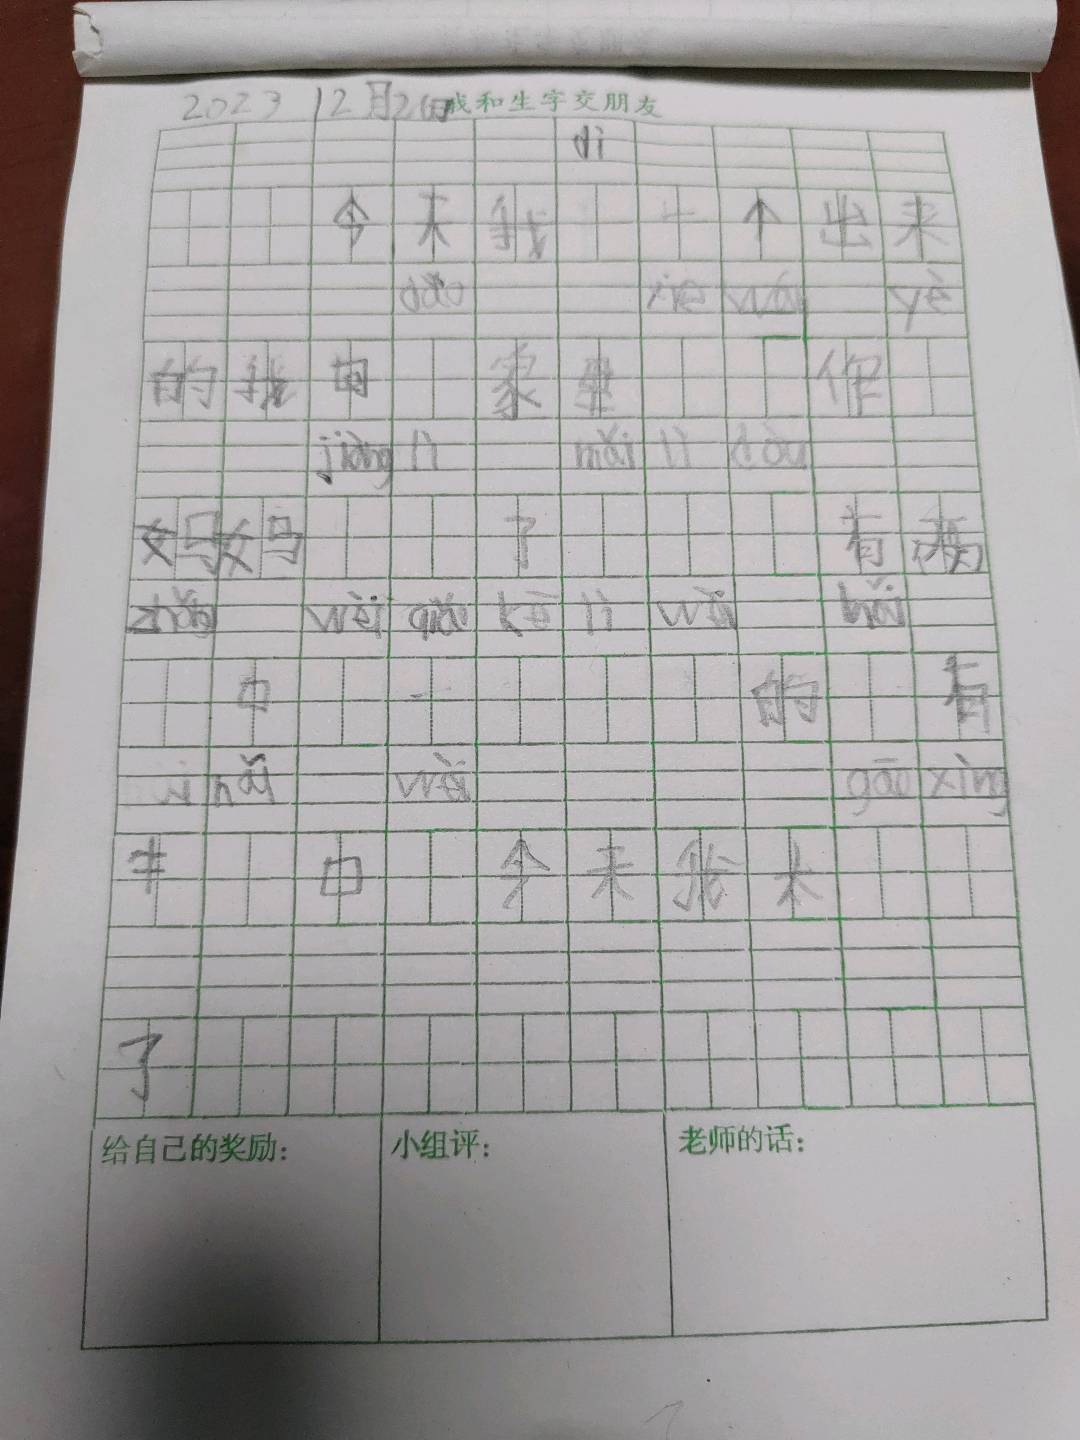 2023 12月2 我和生字交朋友
dì
今天我 十 个 出来
xiě wán yè
的我 家 里 作
jiǎng lì mǎi lì dòu
妈妈 了 有
zhǒng wèi qiǎo kè lì wèi hái
中 一 的 有
nǎi wèi gāo xìng
牛 中 今天我太
了
给自己的奖励： 小组评： 老师的话：